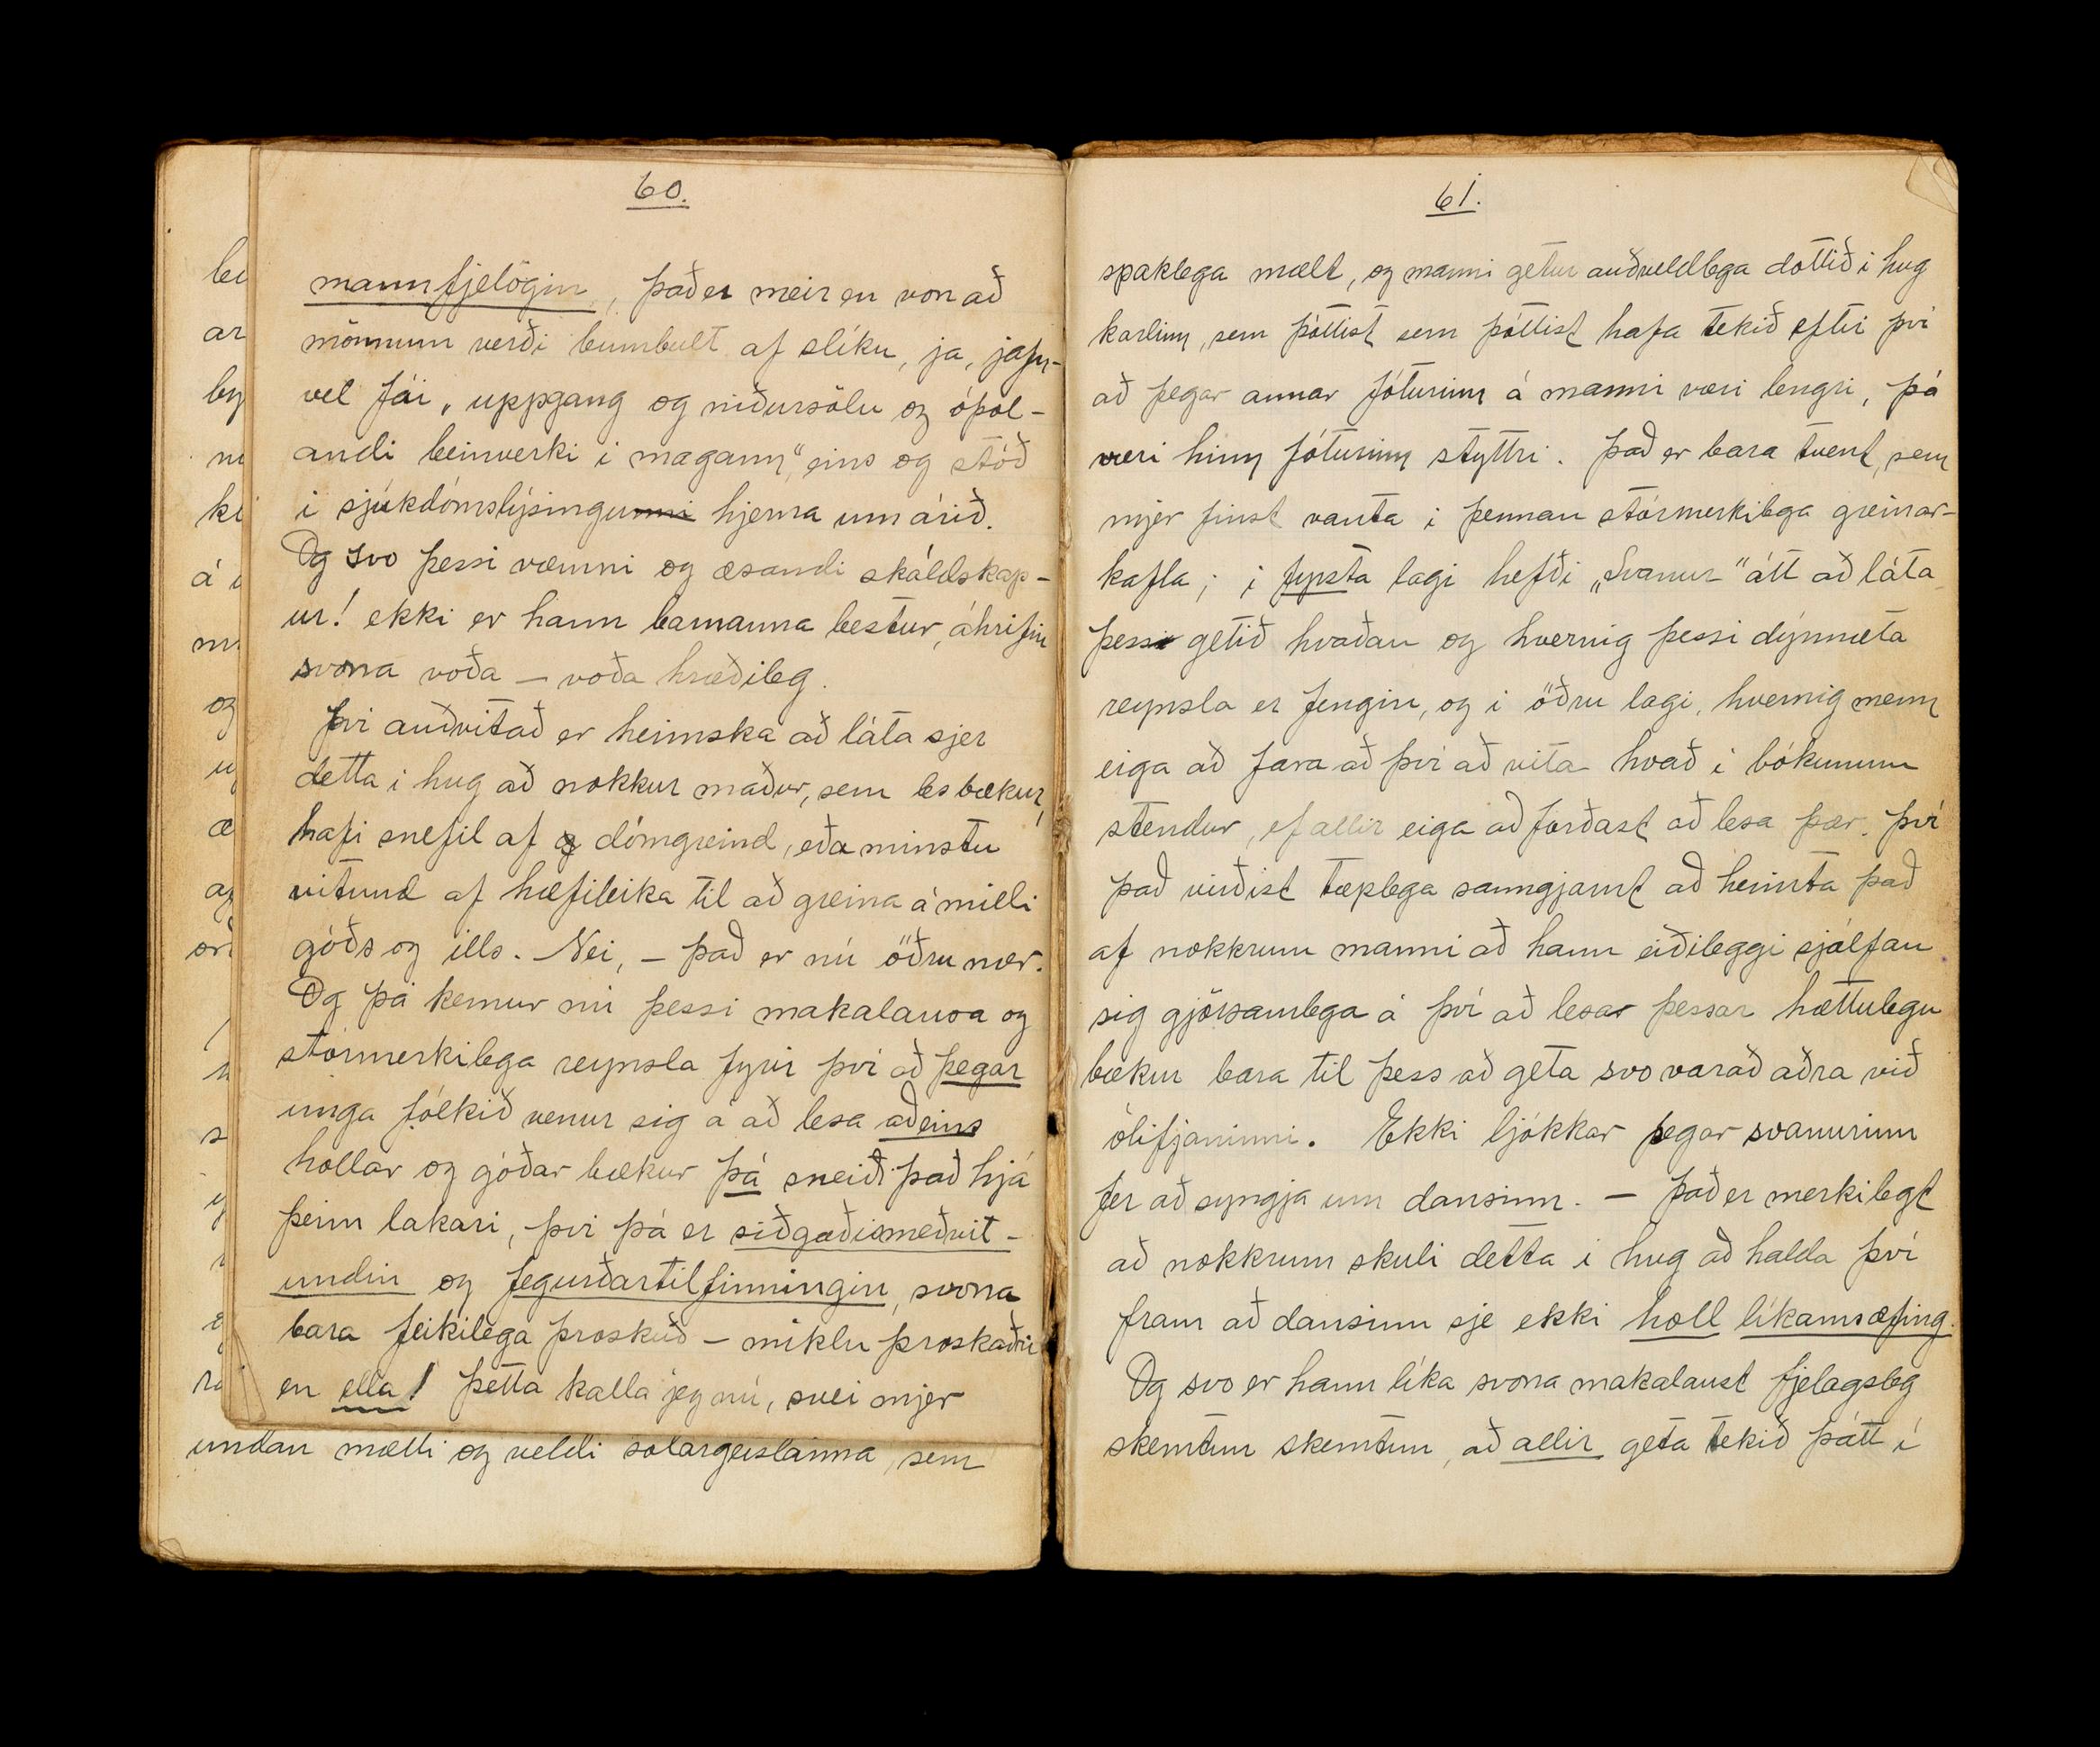 60.
mannfjelögin, það er meir en von að
mönnum verði bumbult af slíku, ja, jafn-
vel fái „uppgang og niðursölu og óþol-
andi beinverki i magann“ eins og stóð
i sjúkdómslýsingunni hjerna um árið.
Og svo þessi væmni og æsandi skáldskap-
ur! ekki er hann barnanna bestur, áhrifin
svona voða — voða hræðileg.
Þvi auðvitað er heimska að láta sjer
detta i hug að nokkur maður, sem les bækur,
hafi snefil af dómgreind, eða minstu
vitund af hæfileika til að greina á milli
góðs og ills. Nei, — það er nú öðru nær.
Og þá kemur nú þessi makalausa og
stórmerkilega reynsla fyrir því að þegar
unga fólkið venur sig á að lesa aðeins
hollar og góðar bækur þá sneiði það hjá
þeim lakari, þvi þá er siðgæðismeðvit-
undin og fegurðartilfinningin, svona
bara feikilega þroskuð — miklu þroskaðri
en ella! Þetta kalla jeg nú, svei mjer
undan mætti og veldi sólargeislanna, sem
bei
ar
by
ni
ki
á
mi
og
æ
af
orð
61.
spaklega mælt, og manni getur auðveldlega dottið i hug
karlinn, sem þóttist sem þóttist hafa tekið eftir því
að þegar annar fóturinn á manni væri lengri, þá
væri hinn fóturinn styttri. Það er bara tvent, sem
mjer finst vanta i þennan stórmerkilega greinar-
kafla; i fyrsta lagi hefði „Svanur“ átt að láta
þess getið hvaðan og hvernig þessi dýrmæta
reynsla er fengin, og i öðru lagi, hvernig menn
eiga að fara að því að vita hvað i bókunum
stendur, ef allir eiga að forðast að lesa þær. Því
það virðist tæplega sanngjarnt að heimta það
af nokkrum manni að hann eiðileggi sjálfan
sig gjörsamlega á því að lesa þessar hættulegu
bækur bara til þess að geta svo varað aðra við
ólifjaninni. Ekki ljókkar þegar svanurinn
fer að syngja um dansinn. — Það er merkilegt
að nokkrum skuli detta i hug að halda því
fram að dansinn sje ekki holl líkamsæfing.
Og svo er hann líka svona makalaust fjelagsleg
skemtun skemtun, að allir geta tekið þátt í